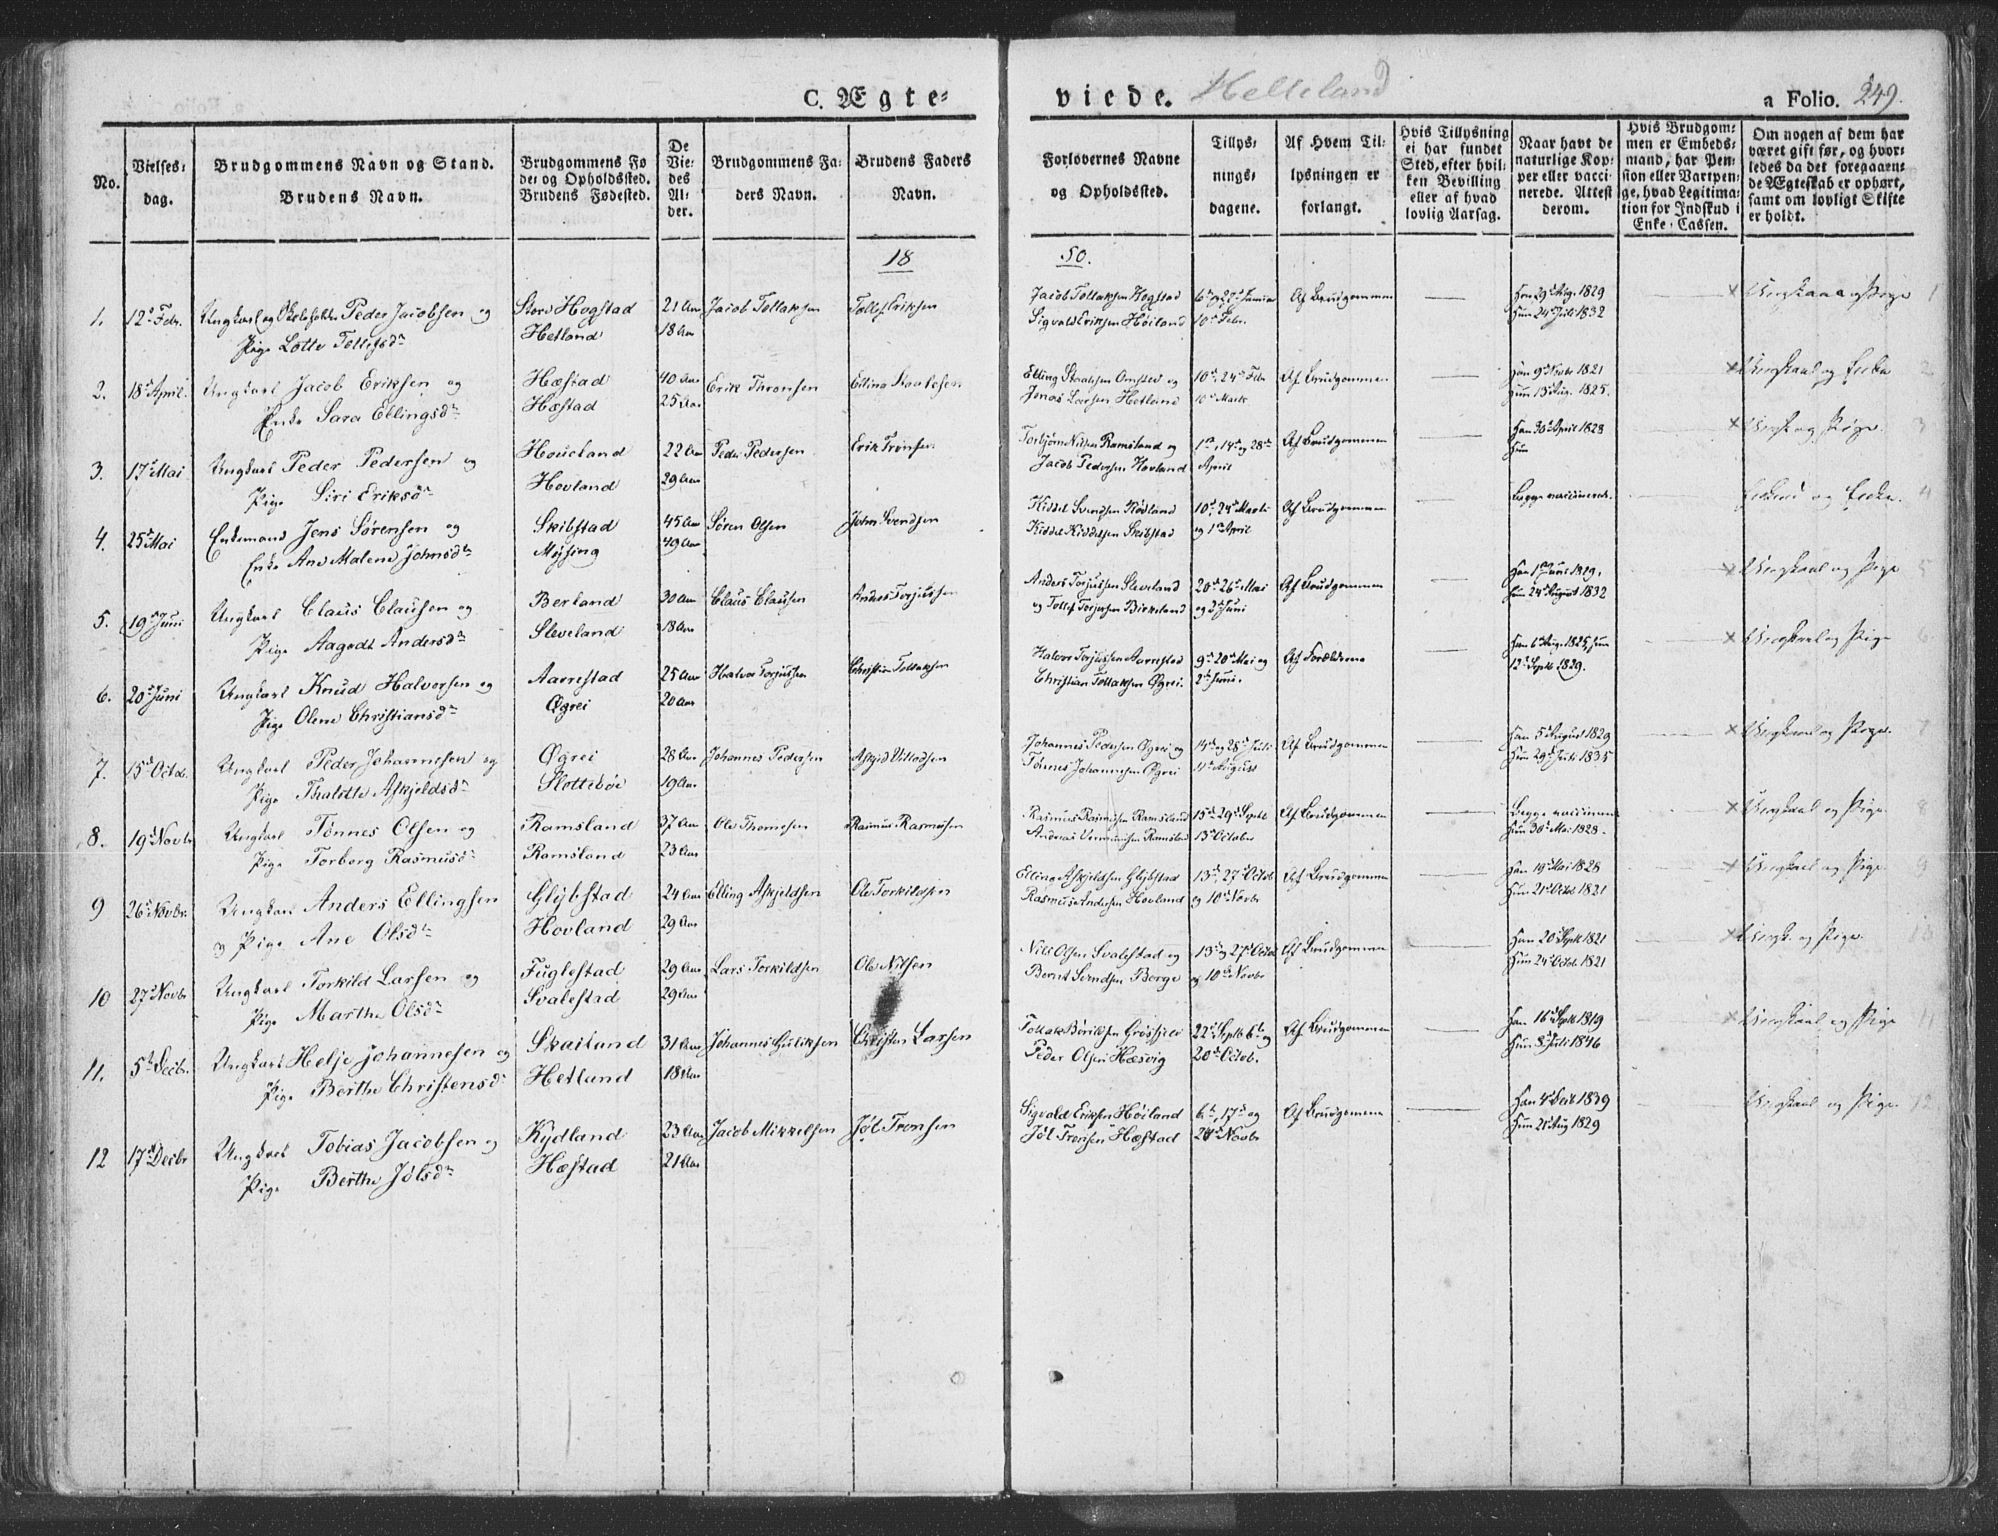 C. Ægte-
No.
Vielses-
dag.
Brudgommens Navn og Stand.
Brudens Navn.
Brudgommens Fø
de- og Opholdssted.
Brudens Fødested.
De
Vie-
des
Al-
der.
Brudgommens Fa-
ders Navn.
Brudens Faders
Navn.
18
1. 12te Febr. Ungkarl og Skoleholder Peder Jacobsen og Store Hogstad 21 Aar Jacob Tollaksen Tollef Eriksen
Pige Lotte Tollefsdr Hetland 18 Aar
2. 18de April. Ungkarl Jacob Eriksen og Hæstad 40 Aar Erik Thronsen Elling Staalesen
Enke Sara Ellingsdr Hæstad 25 Aar
3. 17de Mai Ungkarl Peder Pedersen og Houeland 22 Aar Peder Pedersen Erik Tronsen
Pige Siri Eriksdr Hovland 29 Aar
4. 25de Mai Enkemand Jens Sørensen og Skibstad 45 Aar Søren Olsen John Svendsen
Enke Ane Malene Johnsdr Mysing 49 Aar
5. 19de Juni Ungkarl Claus Clausen og Berland 30 Aar Claus Clausen Anders Torjussen
Pige Aagodt Andersdr Sleveland 18 Aar
6. 20de Juni Ungkarl Knud Halvorsen og Aarrestad 25 Aar Halvor Torjussen Christian Tollaksen
Pige Olene Christiansdr Øgrei 20 Aar
7. 15de Octbr. Ungkarl Peder Johannesen og Øgrei 28 Aar Johannes Pedersen Askjeld Villadsen
Pige Thalette Askjeldsdr Slottebøe 19 Aar
8. 19de Novbr Ungkarl Tønnes Olsen og Ramsland 37 Aar Ole Thomesen Rasmus Rasmusen
Pige Torborg Rasmusdr Ramsland 23 Aar
9 26de Novbr. Ungkarl Anders Ellingsen Glybstad 24 Aar Elling Askjeldsen Ole Torkildsen
og Pige Ane Olsdr Hovland 29 Aar
10 27de Novbr Ungkarl Torkild Larsen og Fuglestad 29 Aar Lars Torkildsen Ole Nilsen
Pige Marthe Olsdr Svalestad 29 Aar
11. 5te Decbr. Ungkarl Helje Johannesen og Skailand 31 Aar Johannes Guliksen Christen Larsen
Pige Berthe Christensdr Hetland 18 Aar
12 17de Decbr Ungkarl Tobias Jacobsen og Kydland 23 Aar Jacob Mikkelsen Jøl Tronsen
Pige Berthe Jølsdr Hæstad 21 Aar
viede. Helleland
a Folio. 249.
Forlovernes Navne
og Opholdssted.
Tillys-
nings-
dagene.
Af Hvem Til-
lysningen er
forlangt.
Hvis Tillysning
ei har fundet
Sted, efter hvil-
ken Bevilling
eller af hvad
lovlig Aarsag.
Naar havt de
naturlige Kop-
per eller vacci-
nerede. Attest
derom.
Hvis Brudgom-
men er Embeds-
mand, har Pen-
sion eller Vartpen-
ge, hvad Legitima-
tion for Indskud i
Enke-Cassen.
Om nogen af dem har
været gift før, og hvor-
ledes da det foregaaen-
de Ægteskab er ophørt,
samt om lovligt Skifte
er holdt.
50.
Jacob Tollaksen Hogstad 6te og 27de Januar Af Brudgommen Han 29de Aug. 1829 × Ungkarl og Pige 1
Sigvald Eriksen Høiland 10de Febr. Hun 24de Juli 1832
Elling Staalesen Omsted og 10de, 24de Febr Af Brudgommen Han 9de Novbr 1821 × Ungkarl og Enke 2
Jonas Larsen Hetland 10de Marts Hun 13de Aug. 1825.
Torbjørn Nilsen Ramsland og 1ste, 14de og 28de Af Brudgommen Han 30te April 1828 × Ungk og Pige. 3
Jacob Pedersen Hovland April Hun
Kiddel Svendsen Rødland 10de, 24de Marts Af Brudgommen Begge vaccinerede. Enkem og Enke. 4
Kiddel Kiddelsen Skibstad og 1ste April
Anders Torjussen Sleveland 20de 26de Mai Af Brudgommen Han 1ste Juni 1829. × Ungkarl og Pige 5
og Tollef Torjersen Birkeland og 2den Juni Hun 24de August 1832
Halvor Torjussen Aarrestad 9de 20de Mai og Af Forældrene Han 6te Aug. 1825, Hun × Ungkarl og Pige 6
Christian Tollaksen Øgrei. 2den Juni. 12te Septb 1829.
Johannes Pedersen Øgrei og 14de og 28de Juli Af Brudgommen Han 5te August 1829 × Ungkarl og Pige. 7
Tønnes Johannesen Øgrei 4de August Hun 29de Juli 1835
Rasmus Rasmusen Ramsland 15de 29de Septb Af Brudgommen Begge vaccineret × Ungkarl og Pige. 8
13de October Hun 30te Mai 1829.
Elling Askjeldsen Glybstad 13de, 27de Octob Af Brudgommen Han 19de Mai 1828 × Ungkarl og Pige. 9
Rasmus Andersen Hovland og 10de Novbr Hun 21de Octb 1821
Nils Olsen Svalestad og 13de og 27de Octob Af Brudgommen Han 20de Septb 1821 × Ungk. og Pige. 10
Bernt Svendsen Berge og 10de Novbr Hun 24de Octob 1821
22de Septb 6te og Af Brudgommen Han 16de Septb 1819 × Ungkarl og Pige 11
Peder Olsen Hæsvig 20de Octob. Hun 8de Juli 1846
Sigvald Eriksen Høiland 6te, 17de og Af Brudgommen Han 4de Decb 1839 Ungkarl og Pige. 12
Jøl Tronsen Hæstad 24de Novbr Hun 21de Aug 1829